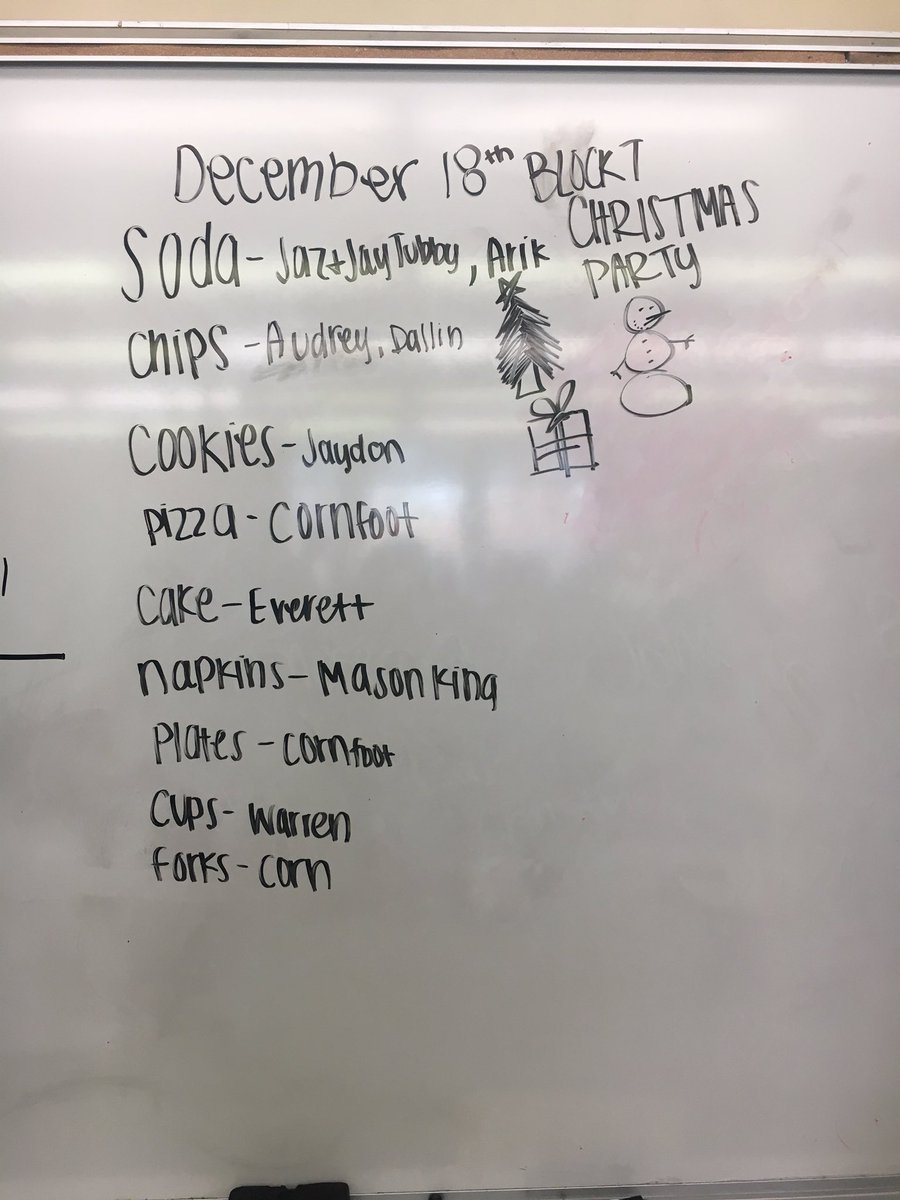 December 18th BLOCK T
CHRISTMAS
PARTY
Soda - Jaz + Jay Tubby, Arik
chips - Audrey, Dallin
Cookies - Jaydon
pizza - Cornfoot
cake - Everett
napkins - Mason King
Plates - cornfoot
cups - Warren
forks - corn